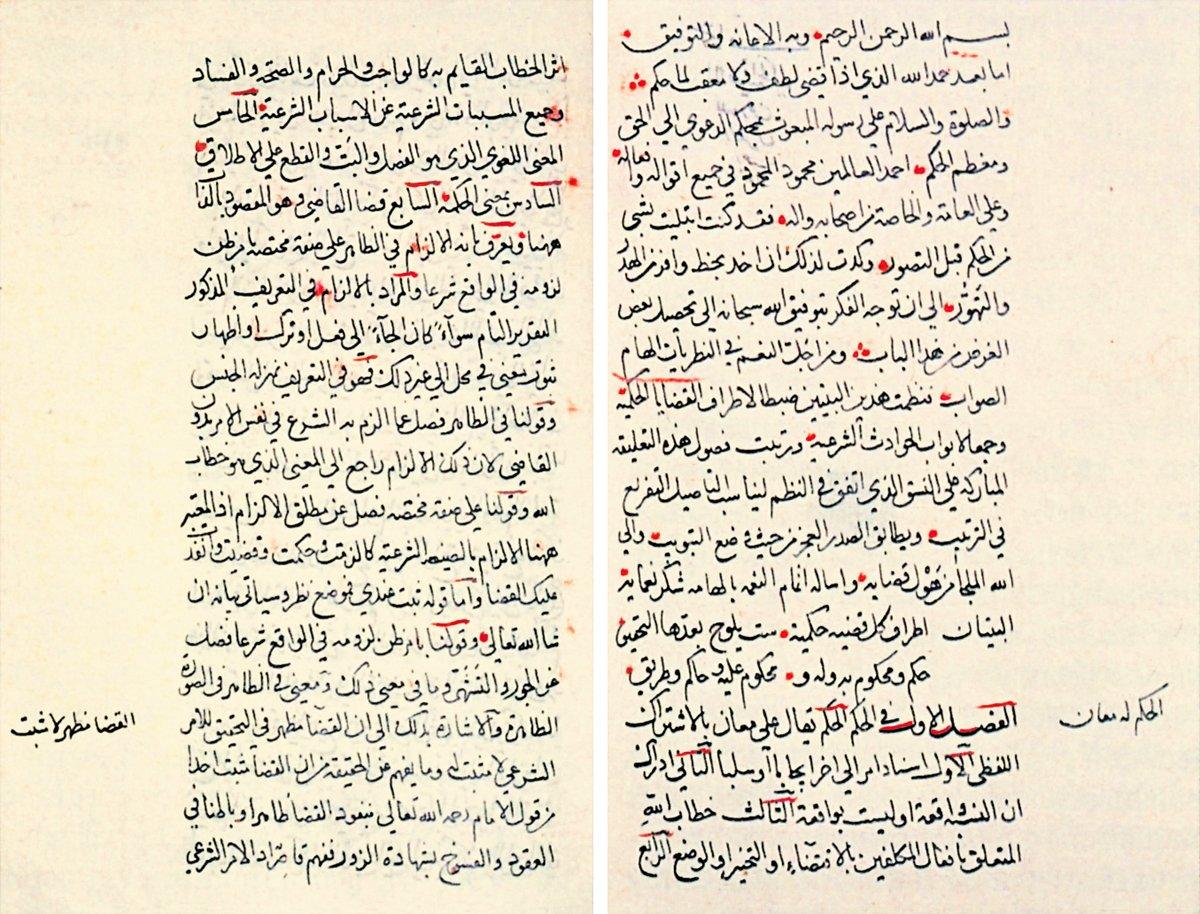 بسم الله الرحمن الرحيم وبه الاعانه والتوفيق
اما بعد حمد الله الذي اذا قضى لطف ولا معقب لما حكم
والصلوة والسلام على رسوله المبعوث بمحكم الدعوي الي الحق
ومعظم الحكم احمد العالمين محمود المحمود في جميع اقواله وافعاله
وعلى العامة والخاصة من اصحابه واله فقد كنت ابتليت بشى
من الحكم قبل التصور وكدت لذلك ان اخذ بحظ وافر من الهذر
والتهور الي ان توجه الفكر بتوفيق الله سبحانه الي تحصيل بعض
الغرض من هذا الباب ومن اجل النعم في النظريات الهام
الصواب فنظمت هذين البيتين ضبطا لاطراف القضايا الحكمية
وجمعا لابواب الحوادث الشرعية ورتبت فصول هذه التعليقة
المباركة على النسق الذي اتفق في النظم ليناسب التاصيل التفريع
في الترتيب ويطابق الصدر العجز من حيث وضع التبويب والي
الله الملجأ من هول قضايه واساله اتمام النعمه بالهامه شكر نعمايه
البيتان اطراف كل قضيه حكمية ست يلوح بعدها التحقيق
حكم ومحكوم به وله و محكوم عليه وحاكم وطريق
الفصل الاول في الحكم الحكم يقال على معان بالاشتراك
الحكم له معان
اللفظي الاول اسناد امر الي اخر ايجابا او سلبا الثاني ادراك
ان النسبة واقعة او ليست بواقعة الثالث خطاب الله
المتعلق بأفعال المكلفين بالاقتضاء او التخيير او الوضع الرابع
اثر الخطاب القايم به كالواجب والحرام والصحة والفساد
وجميع المسببات الشرعية عن الاسباب الشرعية الخامس
المعنى اللغوي الذي هو الفصل والبت والقطع على الاطلاق
السادس بمعنى الحكمة السابع قضا القاضي وهو المقصود بالقا
ههنا ويعرف بانه الالزام في الظاهر على صفة مختصة بامر ظن
لزومه في الواقع شرعا والمراد بالالزام في التعريف المذكور
التقدير التام سواء كان الجاء الي فعل او ترك او اظهار
ثبوت يعني في محل الي غير ذلك فهو في التعريف بمنزلة الجنس
وقولنا في الظاهر فصل عما الزم به الشرع في نفس الامر بدون
القاضي لان ذلك الالزام راجع الي المعنى الذي هو خطاب
الله وقولنا على صفة مختصه فصل عن مطلق الالزام اذ المعتبر
ههنا الالزام بالصيغ الشرعية كالزمت وحكمت وقضيت وانفذت
عليك القضا واما قوله ثبت عندي فموضع نظر سياتي بيانه ان
شا الله تعالى وقولنا بامر ظن لزومه في الواقع شرعا فصل
عن الجور والتشهي وما في معنى ذلك ومعنى في الظاهر في الصورة
الظاهرة والاشارة بذلك الي ان القضا مظهر في التحقيق للامر
القضا مظهر لا مثبت
الشرعي لا مثبت له وما يفهم عن الحقيقة من ان القضا مثبت اخذا
من قول الامام رحمه الله تعالى بنفوذ القضا ظاهرا وباطنا في
العقود والفسوخ بشهادة الزور فهم قاصر اذ الامر الشرعي